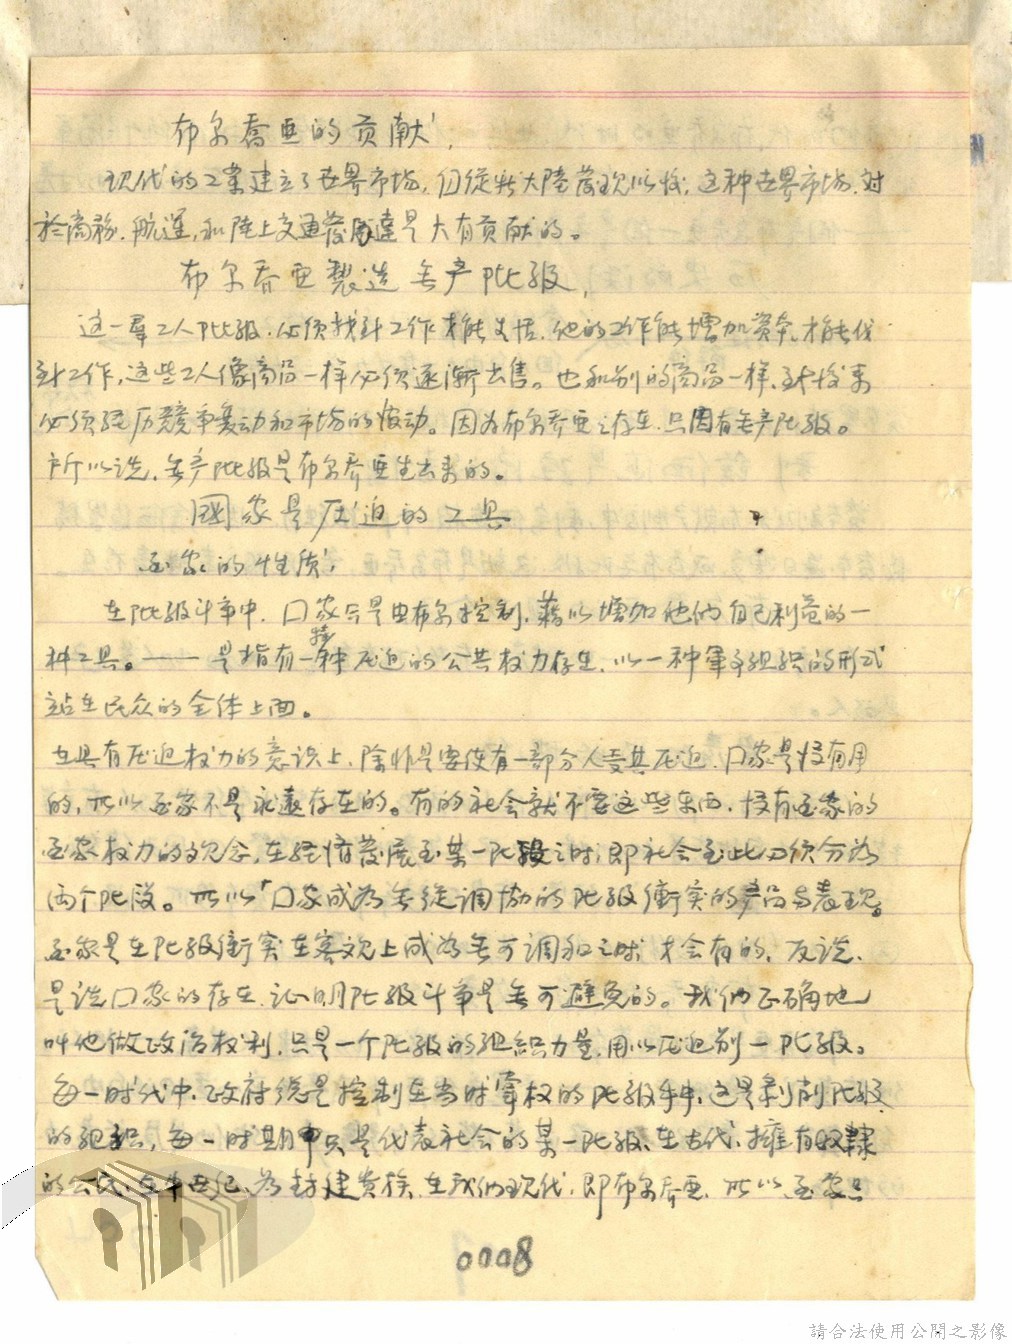 布尔喬亜的贡献
现代的工業建立了世界市场,但從新大陸發現以後,这种世界市场,对
於商務.航運,和陸上交通發展達是大有贡献的。
布尔乔亜製造無产阶级,
这一羣工人阶级,必须找到工作才能生活,他的工作能增加资本,才能找
到工作,这些工人像商品一样必须逐漸出售。也和别的商品一样,到後来
必须经历競争变动和市场的波动。因为布尔乔亜之存在,只因有無产阶级。
所以说,無产阶级是布尔乔亜生出来的。
國家是压迫的工具
国家的性质,
在阶级斗争中,口家只是由布尔控制,藉以增加他们自己利益的一
种工具。——是指有一种特压迫的公共权力存在,以一种軍事组织的形式
站在民众的全体上面。
在具有压迫权力的意识上,除非是要使有一部分人受其压迫,口家是没有用
的,所以国家不是永遠存在的。有的社会就不要这些东西,没有国家的
国家权力的观念,在经济發展至某一阶段之时,即社会至此必须分为
两个阶段。所以「口家成为無從调协的阶级衝突的产品与表现。
国家是在阶级衝突在客观上成为無可调和之时才会有的,反说,
是说口家的存在,证明阶级斗争是無可避免的。我们正确地
叫他做政治权利,只是一个阶级的组织力量,用以压迫别一阶级。
每一时代中,政府總是控制在当时掌权的阶级手中,这是剥削阶级
的组织,每一时期中只是代表社会的某一阶级,在古代,擁有奴隸
的公民,在中世纪,为封建贵族,在我们现代,即布尔乔亜,所以国家只
0008
請合法使用公開之影像